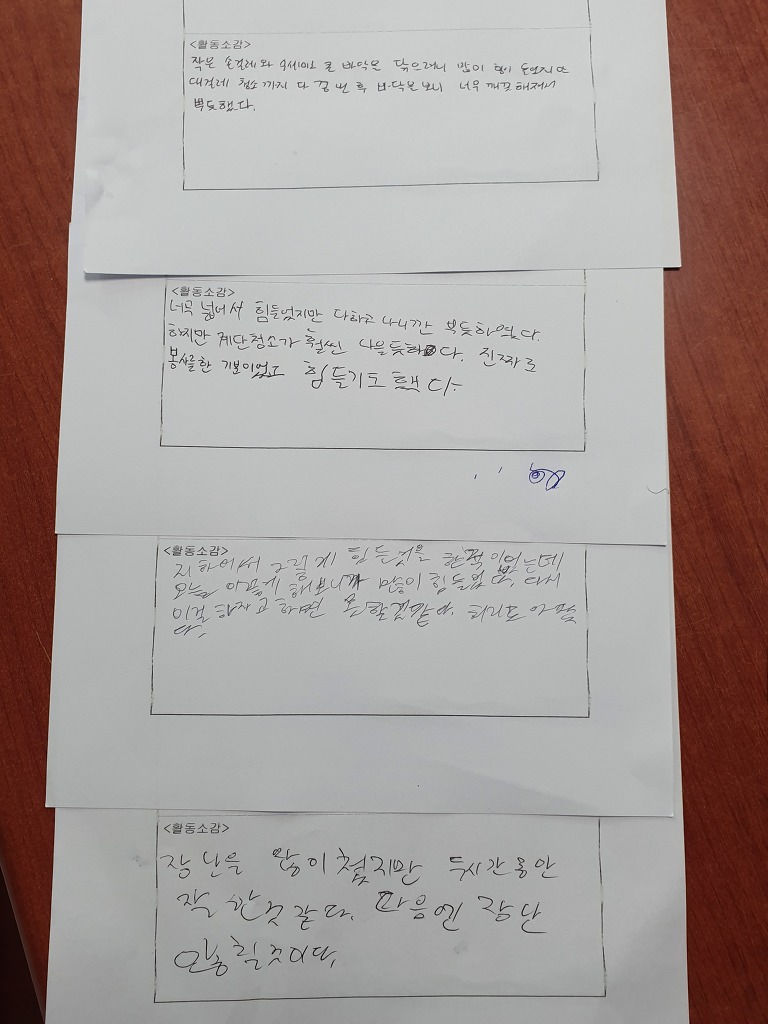 <활동소감>
작은 손걸레와 수세미로 큰 바닥을 닦으려니 많이 힘이 들었지만
대걸레 청소까지 다 끝낸 후 바닥을 보니 너무 깨끗해져서
뿌듯했다.
<활동소감>
너무 넓어서 힘들었지만 다하고 나니깐 뿌듯하였다.
하지만 계단청소가 훨씬 나을듯하다. 진짜로
봉사를한 기분이었고 힘들기도 했다.
<활동소감>
지하에서 그렇게 힘든것을 한적이 없는데
오늘 해보니까 많이 힘들었다. 다시
이걸 하자고 하면 못할것같다. 허리도 아팠
다.
<활동소감>
장난을 많이 쳤지만 두시간동안
잘 한것 같다. 다음엔 장난
안칠것이다.